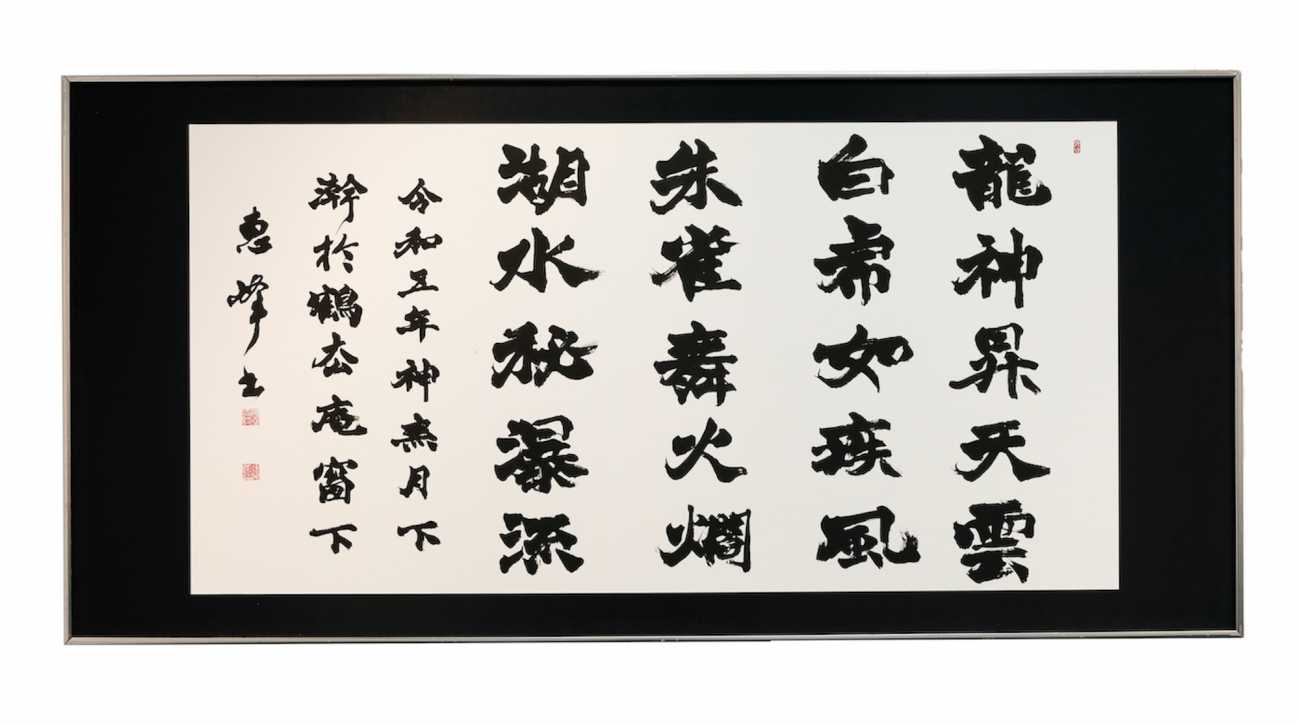 龍神昇天雲
白虎如疾風
朱雀舞火爛
湖水秘瀑流
令和五年神無月下
澣於鶴杢庵窗下
惠峰書